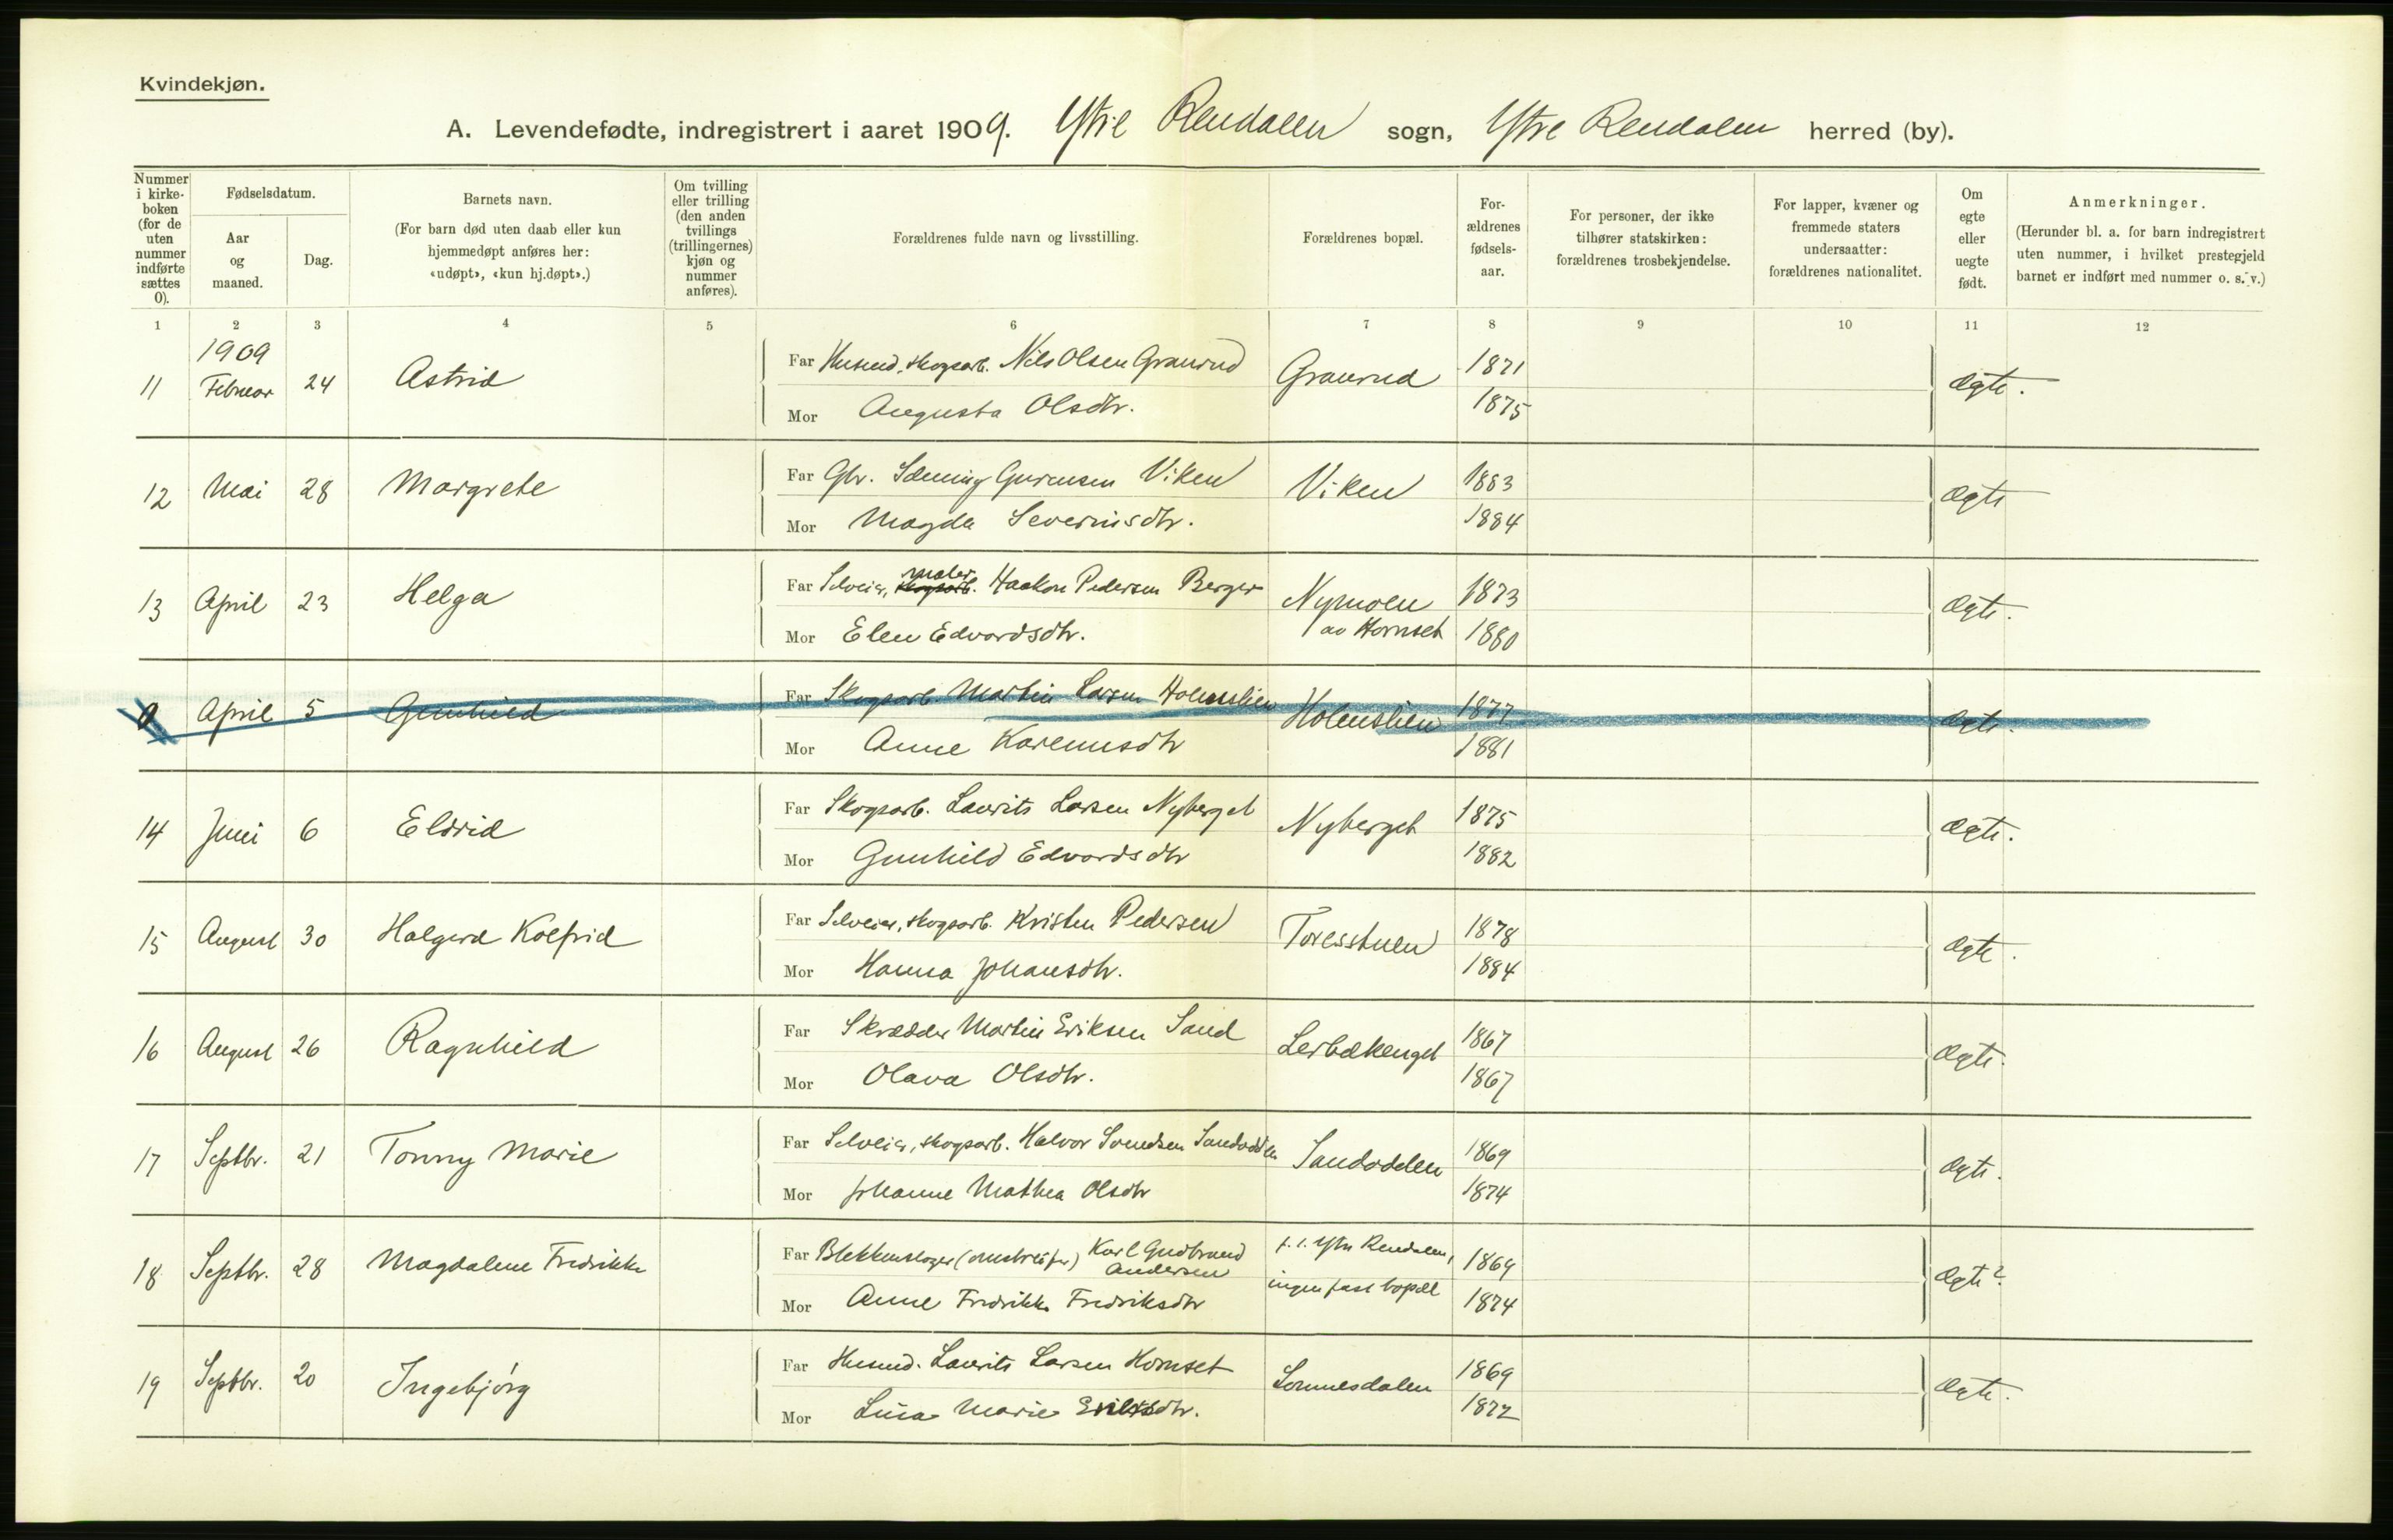 Kvindekjøn.
A. Levendefødte, indregistrert i aaret 1909. Ytre Rendalen sogn, Ytre Rendalen herred (by).
Nummer i kirke-boken (for de uten nummer indførte sættes 0).
Fødselsdatum.
Aar og maaned.
Dag.
Barnets navn.
(For barn død uten daab eller kun hjemmedøpt anføres her: «udøpt», «kun hj.døpt».)
Om tvilling eller trilling (den anden tvillings (trillingernes) kjøn og nummer anføres).
Forældrenes fulde navn og livsstilling.
Forældrenes bopæl.
For-ældrenes fødsels-aar.
For personer, der ikke tilhører statskirken: forældrenes trosbekjendelse.
For lapper, kvæner og fremmede staters undersaatter: forældrenes nationalitet.
Om egte eller uegte født.
Anmerkninger.
(Herunder bl. a. for barn indregistrert uten nummer, i hvilket prestegjeld barnet er indført med nummer o. s. v.)
1 2 3 4 5 6 7 8 9 10 11 12
1909
11 Februar 24 Astrid Far Husmd, skogsarb. Nils Olsen Granrud Granrud 1871 ægte.
Mor Augusta Olsdtr. 1875
12 Mai 28 Margrete Far Gbr. Viken Viken 1883 ægte
Mor Magda Severinsdtr. 1884
13 April 23 Helga Far Selveier, maler skogsarb. Haakon Pedersen Berger Nymoen 1873 ægte.
Mor Elen Edvardsdtr. av Hornset 1880
0 April 5 Gunhild Far Skogsarb Martin Larsen Holmslien Holmslien 1877 ægte.
Mor Anne Karenusdtr 1881
14 Juni 6 Eldrid Far Skogsarb. Laurits Larsen Nyberget Nyberget 1875 ægte.
Mor Gunhild Edvardsdtr 1882
15 August 30 Halgerd Kolfrid Far Selveier, skogsarb. Kristen Pedersen Toresstuen 1878 ægte.
Mor Hanna Johansdtr. 1884
16 August 26 Ragnhild Far Skrædder Martin Eriksen Sand Lerbækenget 1867 ægte.
Mor Olava Olsdtr. 1867
17 Septbr. 21 Tonny Marie Far Selveier, skogsarb. Halvor Svendsen Sandodden Sandodden 1869 ægte.
Mor Johanne Mathea Olsdtr 1874
18 Septbr. 28 Magdalene Fredrikke Far Blikkenslager (omstreifer) Karl Gudbrand Andersen f. i. Ytre Rendalen, 1869 ægte?
Mor Anne Fredrikke Fredriksdtr ingen fast bopæl 1874
19 Septbr. 20 Ingebjørg Far Husmd. Laurits Larsen Hornset Lomnesdalen 1869 ægte.
Mor Lina Marie Eriksdtr. 1872